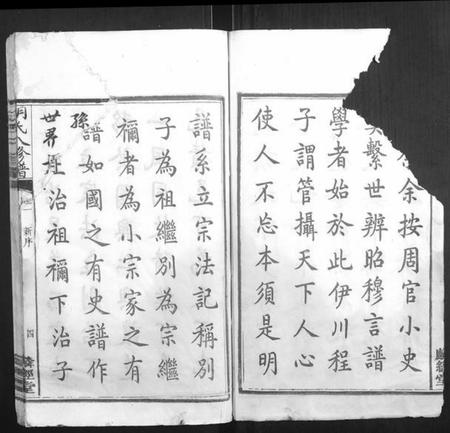 余按周官小史
繫世辨昭穆言譜
學者始於此伊川程
子謂管攝天下人心
使人不忘本須是明
譜系立宗法記稱別
子為祖繼別為宗繼
禰者為小宗家之有
譜如國之有史譜作
孫
世界上治祖禰下治子
氏八修譜
新序
四